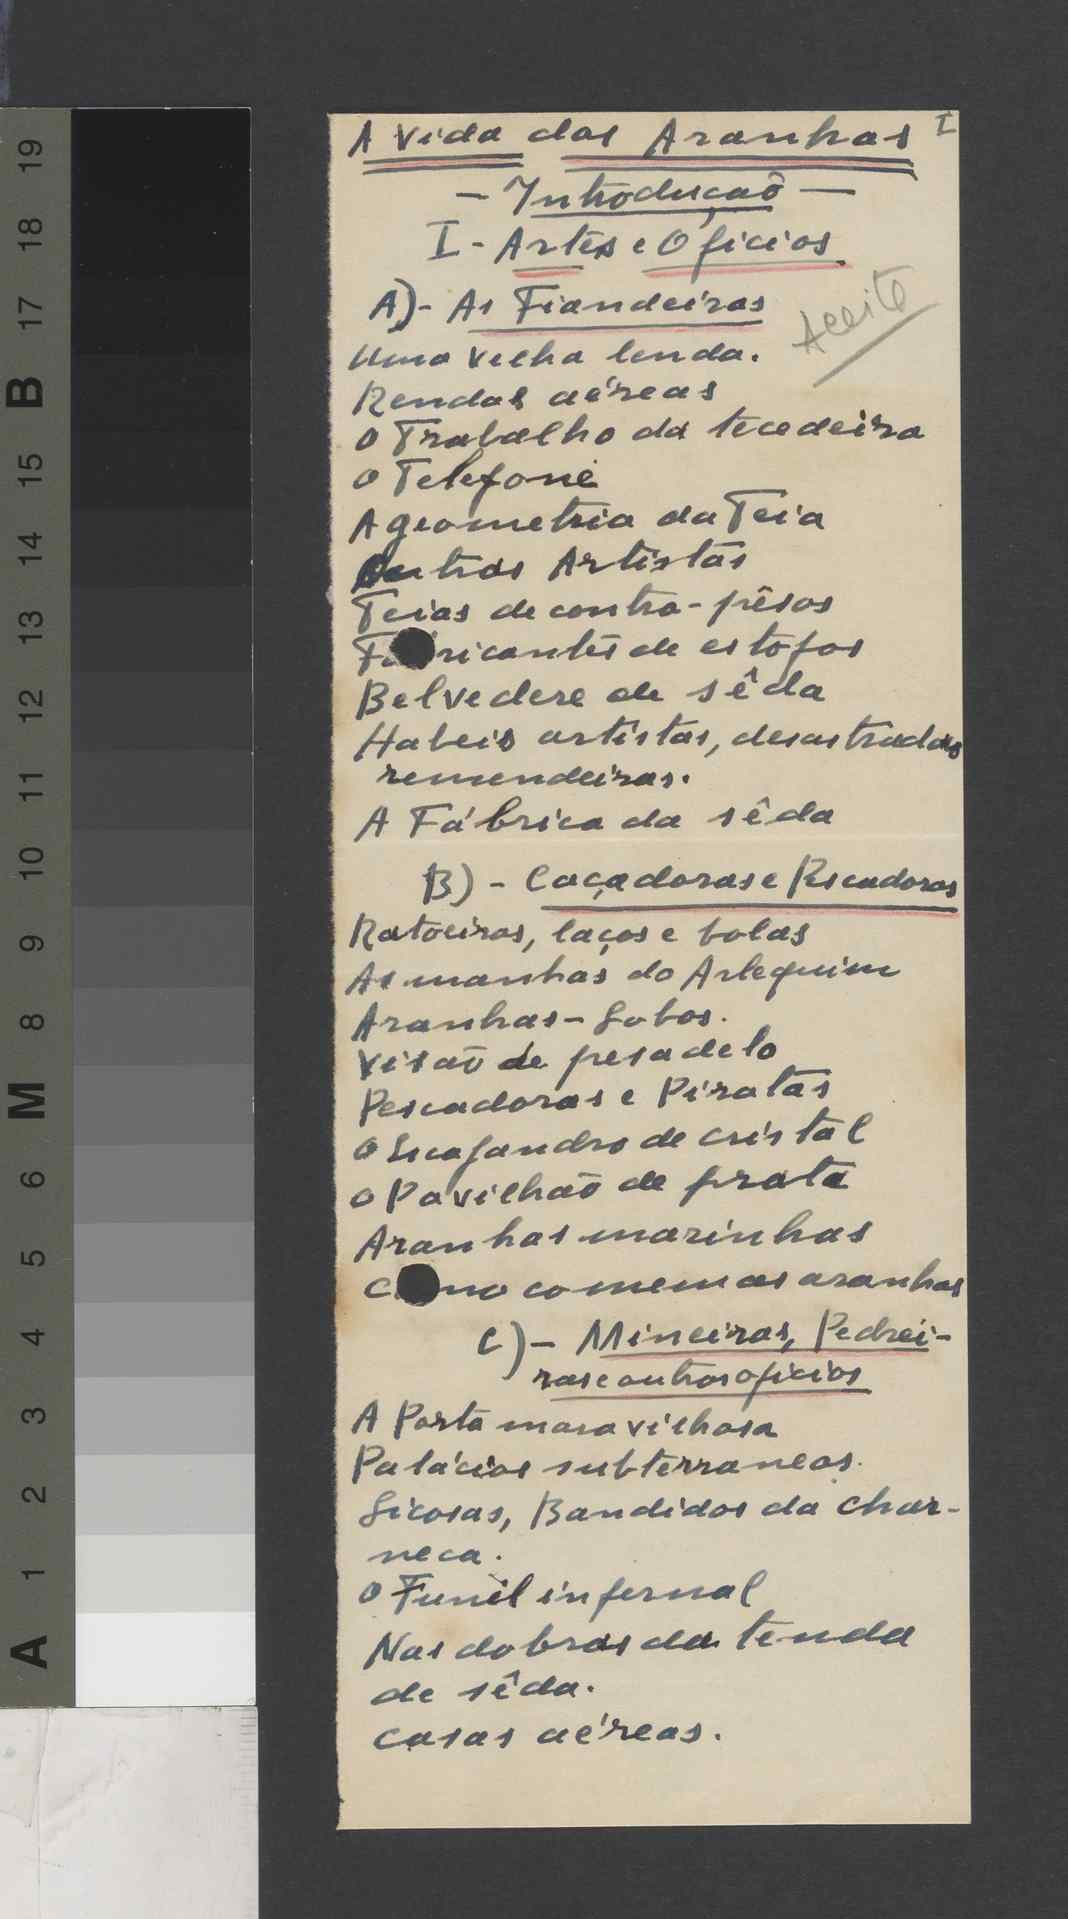 19
18
17
B
15
14
13
12
11
10
9
8
M
6
5
4
3
2
1
A
I
A Vida das Aranhas
- Introdução -
I - Artes e Ofícios
Aceite
A) - As Fiandeiras
Uma velha lenda.
Rendas aéreas
O Trabalho da tecedeira
O Telefone
A geometria da Teia
Outras Artistas
Teias de contra-pêsos
Fabricantes de estofos
Belvedere de sêda
Habeis artistas, desastradas
remendeiras.
A Fábrica da sêda
B) - Caçadoras e Pescadoras
Ratoeiras, laços e bolas
As manhas do Arlequim
Aranhas-Lobos.
Visão de pesadelo
Pescadoras e Piratas
O Escafandro de cristal
O Pavilhão de prata
Aranhas marinhas
Como comem as aranhas
C) - Mineiras, Pedrei-
ras e outros ofícios
A Porta maravilhosa
Palácios subterraneos.
Licosas, Bandidos da Char-
neca.
O Funil infernal
Nas dobras da tenda
de sêda.
Casas aéreas.